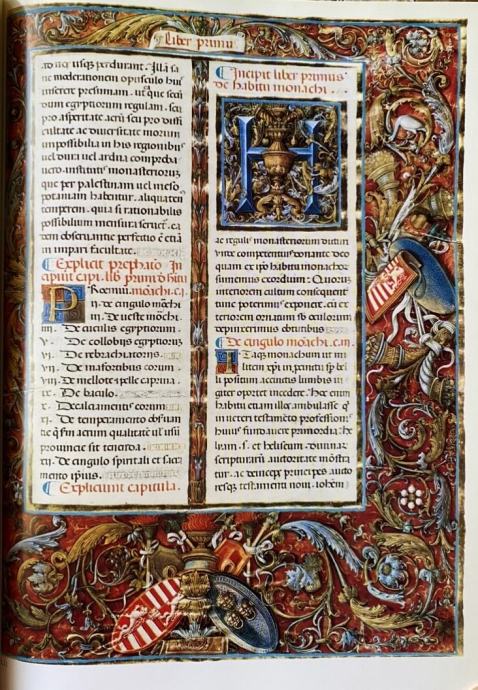 Liber primus
ac usq; perdurant. Illa sa
ne moderationem opusculo huic
inserere presumam. ut que secundum
dum egyptiorum regulam. seu
pro asperitate aeru seu pro diffi
cultate ac diuersitate morum
impossibilia in his regionibus
uel dura uel ardua comproba
uero. institutis monasteriorum
que per palestinam uel meso
potamiam habentur. aliquaten
temperem. quia si rationabilis
possibilium mensura seruet. ea
dem obseruantie perfectio e etia
in impari facultate.
Explicit prephatio In
cipiunt capi. lib. primi d hitu
Proemiu. monachi. c. i.
ii. de cingulo monachi
iii. De ueste monachi
iiii. De cucullis egyptiorum.
v. De collobiis egyptioru
vi. De rebrachiatoriis.
vii. De mafortibus eorum.
viii. De mellote i pelle caprina.
ix. De baculo.
x. De calciamentis eorum
xi. De temperamento obseruan
tie qm aerum qualitate ul' usu
prouincie sit tenenda.
xii. De cingulo spiritali et sacra
mento ipsius.
Expliciunt capitula.
Incipit liber primus
de habitu monachi.
H
ac regulis monasteriorum dicturi
unde competentius donante deo
quam ex ipso habitu monachoru
sumemus exordium. Quorum
interiorem cultum consequenter
tunc poterimus exponere. cu ex
teriorem ornatum sub oculorum
depinxerimus obtutibus
De cingulo monachi. c. ii.
Itaq; monachum ut mi
litem xpi in pcinctu sp bel
li positum accinctis lumbis iu
giter oportet incedere. Hoc enim
habitu etiam illos ambulasse q
in ueteri testamento professionis
huius fundauere primordia. he
liam. s. et heliseum diuinar
scripturaru autoritate monstra
tur. ac deinceps principes aucto
resq; testamenti noui. iohem